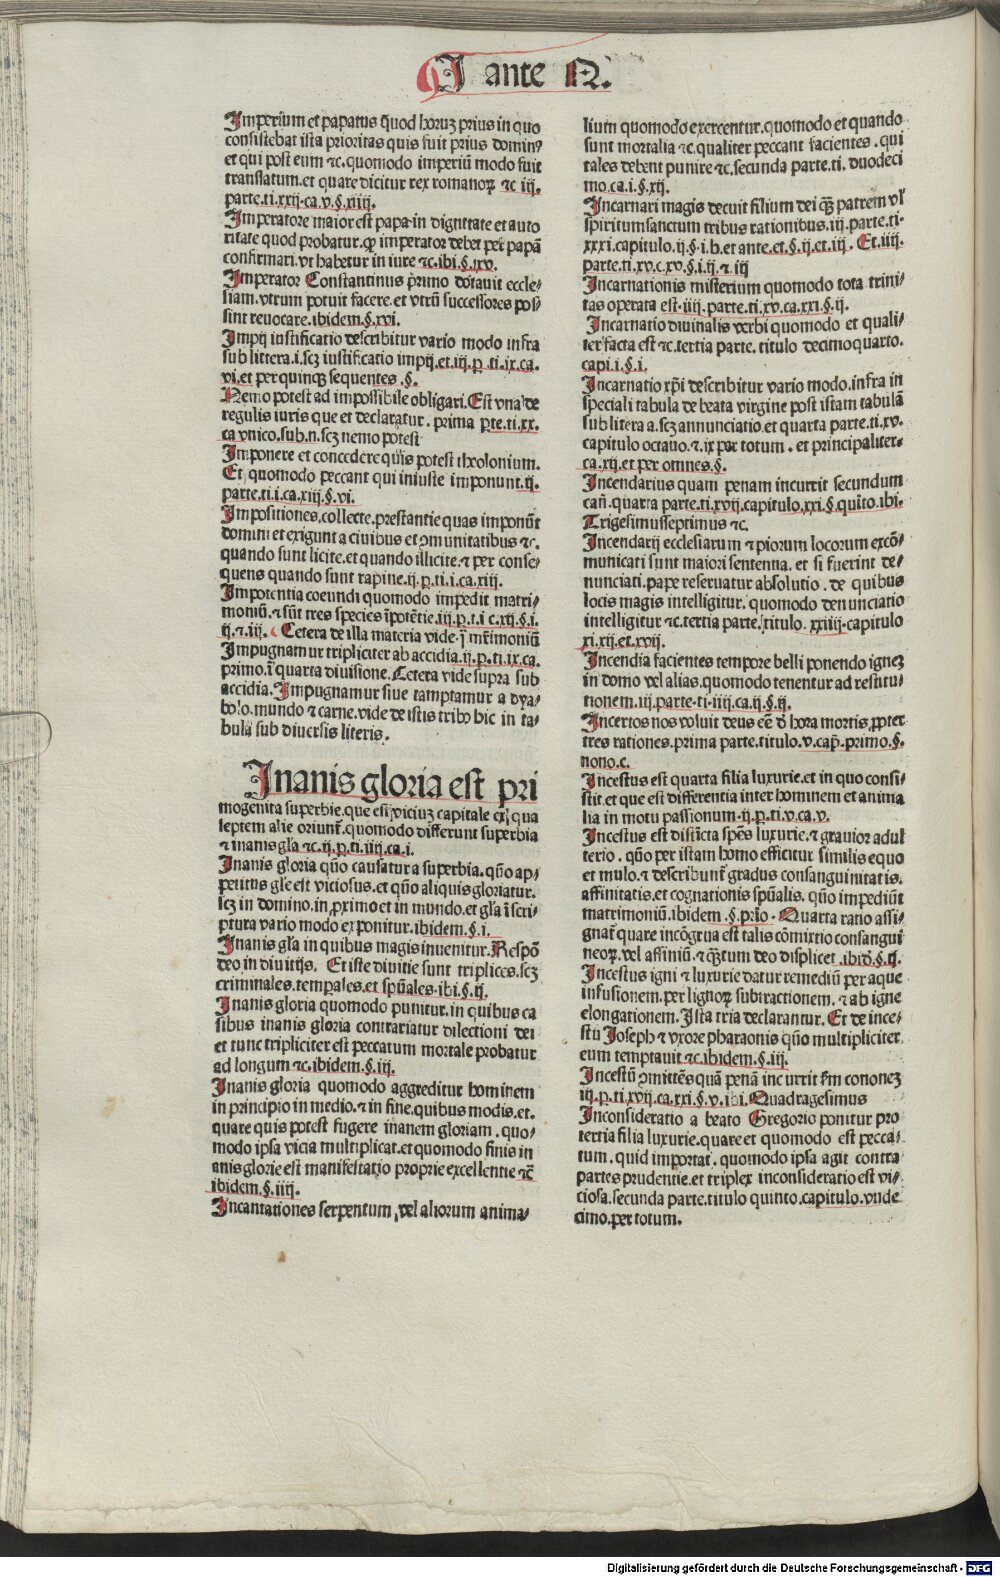 I ante N.
Imperium et papatus quod horuz prius in quo
consistebat ista prioritas quis fuit prius dominꝰ
et qui post eum ⁊c. quomodo imperiū modo fuit
translatum. et quare dicitur rex romanoꝝ ⁊c iij.
parte. ti. xxij. ca. v. §. xiiij.
Imperatore maior est papa in dignitate et auto
ritate quod probatur. ꝙ imperator debet per papā
confirmari. vt habetur in iure ⁊c. ibi. §. xv.
Imperator Constantinus primo dotauit eccle-
siam. vtrum potuit facere. et vtrū successores pos-
sint reuocare. ibidem. §. xvi.
Impij iustificatio describitur vario modo infra
sub littera. i. scz iustificatio impij. et. iij. p. ti. ix. ca.
vi. et per quinqꝫ sequentes. §.
Nemo potest ad impossibile obligari. Est vna de
regulis iuris que et declaratur. prima ꝑte. ti. xx.
ca vnico. sub. n. scz nemo potest
Imponere et concedere quis potest theolonium.
Et quomodo peccant qui iniuste imponunt. ij.
parte. ti. i. ca. xiij. §. vi.
Impositiones. collecte. prestantie quas imponūt
domini et exigunt a ciuibus et ꝯmunitatibus ⁊c.
quando sunt licite. et quando illicite. ⁊ per conse-
quens quando sunt rapine. ij. p. ti. i. ca. xiij.
Impotentia coeundi quomodo impedit matri-
moniū. ⁊ sūt tres species īpotētie. iij. p. t. i c. xij. §. i.
ij. ⁊. iij. Cetera de illa materia vide. ī mr̄imoniū
Impugnamur tripliciter ab accidia. ij. p. ti. ix. ca.
primo. ī quarta diuisione. Cetera vide supra sub
accidia. Impugnamur siue tamptamur a dya-
bolo. mundo ⁊ carne. vide de istis tribꝰ hic in ta-
bula sub diuersis literis.
Inanis gloria est pri
mogenita superbie. que est viciuz capitale ex qua
septem alie oriunt̄. quomodo differunt superbia
⁊ inanis gl̄a ⁊c. ij. p. ti. iiij. ca. i.
Inanis gloria quō causatur a superbia. quō ap-
petitus gl̄e est viciosus. et quō aliquis gloriatur.
scz in domino. in ꝓximo et in mundo. et gl̄a ī scri-
ptura vario modo exponitur. ibidem. §. i.
Inanis gl̄a in quibus magis inuenitur. Respō
deo in diuitijs. Et iste diuitie sunt triplices. scz
criminales. temꝑales. et spūales. ibi. §. ij.
Inanis gloria quomodo punitur. in quibus ca
sibus inanis gloria contrariatur dilectioni dei
et tunc tripliciter est peccatum mortale probatur
ad longum ⁊c. ibidem. §. iij.
Inanis gloria quomodo aggreditur hominem
in principio in medio. ⁊ in fine. quibus modis. et.
quare quis potest fugere inanem gloriam. quo-
modo ipsa vicia multiplicat. et quomodo finis in
anis glorie est manifestatio proprie excellentie ⁊c̄
ibidem. §. iiij.
Incantationes serpentum, vel aliorum anima-
lium quomodo exercentur. quomodo et quando
sunt mortalia ⁊c. qualiter peccant facientes. qui
tales debent punire ⁊c. secunda parte. ti. duodeci
mo. ca. i. §. xij.
Incarnari magis decuit filium dei qꝫ patrem vl̄
spiritumsanctum tribus rationibus. iij. parte. ti.
xxxi. capitulo. ij. §. i. b. et ante. et. §. ij. et. iij. Et. iiij.
parte. ti. xv. c. xv. §. i. ij. ⁊. iij
Incarnationis misterium quomodo tota trini-
tas operata est. iiij. parte. ti. xv. ca. xxi. §. ij.
Incarnatio diuinalis verbi quomodo et quali-
ter facta est ⁊c. tertia parte. titulo decimoquarto.
capi. i. §. i.
Incarnatio xp̄i describitur vario modo. infra in
speciali tabula de beata virgine post istam tabulā
sub litera a. scz annunciatio. et quarta parte. ti. xv.
capitulo octauo. ⁊. ix per totum. et principaliter.
ca. xij. et per omnes. §.
Incendarius quam penam incurrit secundum
cañ. quarta parte. ti. xvij. capitulo. xxi. §. quīto. ibi.
Trigesimusseptimus ⁊c.
Incendarij ecclesiarum ⁊ piorum locorum excō-
municati sunt maiori sententia. et si fuerint de-
nunciati. pape reseruatur absolutio. de quibus
locis magis intelligitur. quomodo denunciatio
intelligitur ⁊c. tertia parte. titulo. xxiiij. capitulo
xi. xij. et. xvij.
Incendia facientes tempore belli ponendo ignez
in domo vel alias. quomodo tenentur ad restitu-
tionem. iij. parte. ti. iiij. ca. ij. §. ij.
Incertos nos voluit deus eē d̄ hora mortis, ꝓpter
tres rationes. prima parte. titulo. v. cap̄. primo. §.
nono. c.
Incestus est quarta filia luxurie. et in quo consi-
stit. et que est differentia inter hominem et anima
lia in motu passionum. ij. p. ti. v. ca. v.
Incestus est distīcta spēs luxurie. ⁊ grauior adul
terio. quō per istam homo efficitur similis equo
et mulo. ⁊ describunt̄ gradus consanguinitatis.
affinitatis. et cognationis spūalis. quō impediūt
matrimoniū. ibidem. §. prīo. Quarta ratio assi-
gnat̄ quare incōgrua est talis cōmixtio consangui
neoꝝ. vel affiniū. ⁊ qꝫtum deo displicet. ibid̄. §. ij.
Incestus igni ⁊ luxurie datur remediū per aque
infusionem. per lignoꝝ subtractionem. ⁊ ab igne
elongationem. Ista tria declarantur. Et de ince-
stu Joseph ⁊ vxore pharaonis quō multipliciter.
eum temptauit ⁊c. ibidem. §. iij.
Incestū ꝯmittēs quā penā incurrit s̄m cononez
iij. p. ti. xvij. ca. xxi. §. v. ibi. Quadragesimus
Inconsideratio a beato Gregorio ponitur pro
tertia filia luxurie. quare et quomodo est pecca-
tum. quid importat. quomodo ipsa agit contra
partes prudentie. et triplex inconsideratio est vi-
ciosa. secunda parte. titulo quinto. capitulo. vnde
cimo. per totum.
Digitalisierung gefördert durch die Deutsche Forschungsgemeinschaft - DFG